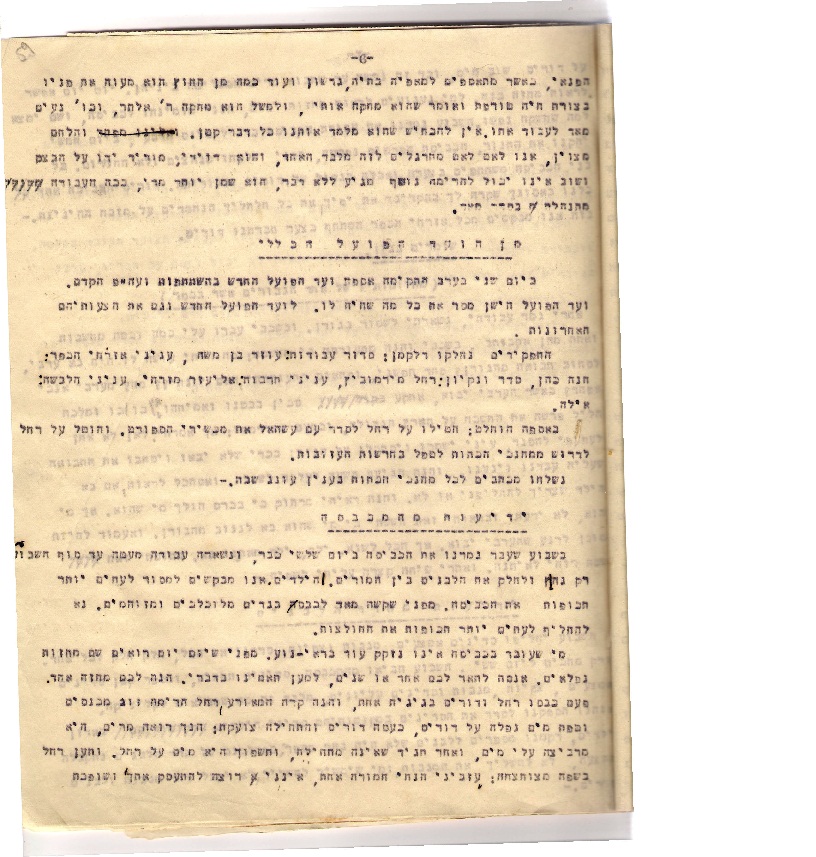 -6-
הפנאי, כאשר מתאספים למאפיה בחיה, גרשון ועוד כמה מן החוץ הוא מעוה את פניו
בצורת חיה טורפת ואומר שהוא מחקה אותי, ולמשל הוא מחקה ר' אלתר, וכו' נעים
מאד לעבוד אתו. אין להכחיש שהוא מלמד אותנו כל דבר קטן. והלחם
מצוין, אנו לאט לאט מתרגלים לזה מלבד האחד, והוא דוידי, מוריד ידו על הבצק
ושוב אינו יכול להרימה נוסף מגיע ללא דבר, הוא שמן יותר מדי, ככה העבודה
מתנהלת בסדר מאד.
מן הועד הפועל הכללי
ביום שני בערב התקימה אספת ועד הפועל החדש בהשתתפות ועה"פ הקדם.
ועד הפועל הישן מסר את כל מה שהיה לו. לועד הפועל החדש וגם את הצעותיהם
האחרונות.
התפקידים נחלקו דלקמן: סדור עבודות: עוזר בן משה, עניני אזרחי הכפר:
חנה כהן, סדר ונקיון: רחל מירמוביץ, עניני תרבות: אליעזר מזרחי. עניני הלבשה:
אילה.
באספה הוחלט: הטילו על רחל לסדר עם עשהאל את מכשירי הספורט. והוטל על רחל
לדרוש ממחנכי הכתות לטפל בחרשות העזובות.
נשלחו מכתבים לכל מחנכי הכתות בענין עונג שבת.-
ידיעות מהמכבסה
בשבוע שעבר גמרנו את הכביסה ביום שלשי כבר, ונשארה עבודה מעטה עד סוף השבוע
רק ולחלק את הלבנים בין המורים. הילדים. אנו מבקשים למסור לעתים יותר
תכופות את הכביסה. מפני שקשה מאד לכבסה בגדים מלוכלכים ומזוהמים. נא
להחליף לעתים יותר תכופות את החולצות.
מי שעובד בכביסה אינו נזקק עוד בראי-נוע. מפני שיום יום רואים שם מחזות
נפלאים. אנסה לתאר לכם אחד או שנים, למען תאמינו בדברי. הנה לכם מחזה אחד.
פעם כבסו רחל ודורים בגיגית אחת, והנה קרה המאורע, רחל הרימה זוג מכנסים
וטפת מים נפלה על דורים, כעסה דורים והתחילה צועקת: הנך רואה מרים, היא
מרביצה עלי מים, ואחר תגיד שאינה מתחילה, ותשפוך היא מים על רחל. ותען רחל
בשפה מצוחצחת: עזביני הנחי חמורה אחת, אינני רוצה להתעסק אתך ושופכת